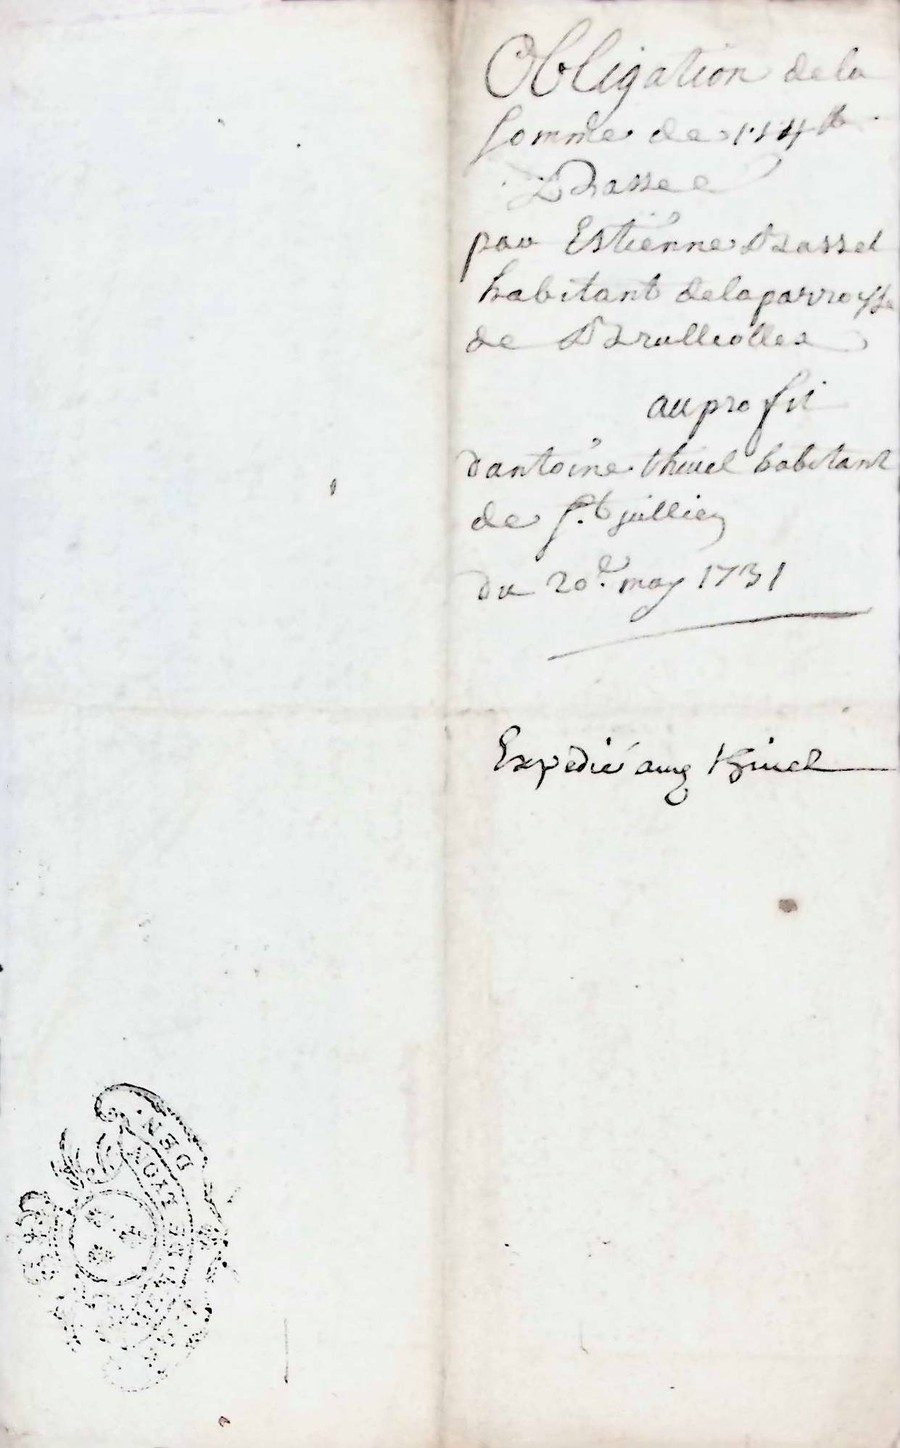 Obligation de la
somme de 114 lb
passee
par Estiénne Brassel
habitant de la parroysse
de Brullioles
au profit
dantoine thivel habitant
de St jullien
du 20e may 1731
Expédié aux thivel
DEN.
LYON